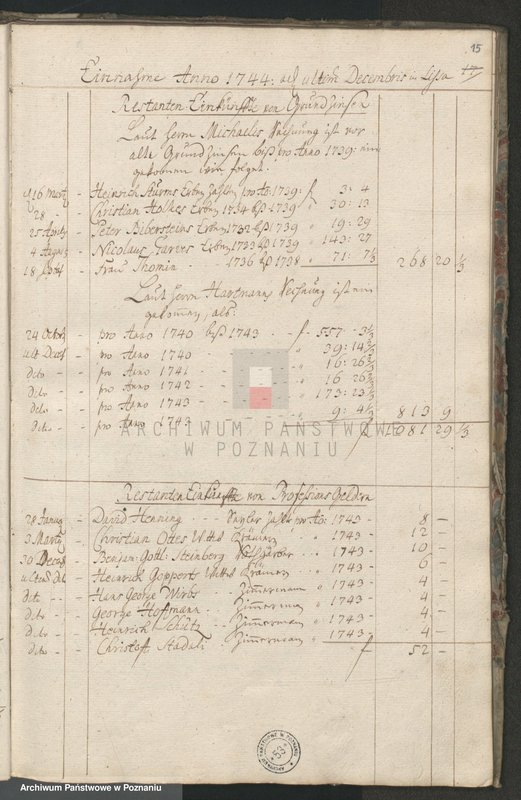 15
Einnahme Anno 1744: ad ultem Decembris in Lissa 17
Restanten Einkünffte von Grundzinsen
Laut Herrn Michaelis Rechnung ist vor
alte Grundzinsen biß pro Anno 1739: ein
gekommen wie folget.
16 Martz - Heinrich Sturms Erben Zahlen pro Ao: 1739: f 3: 4
28 - Christian Holkes Erben 1734 biß 1739 " 30: 13
25 Aprilis - Peter Bibersteins Erben 1732 biß 1739 " 19: 29
4 Augusti - Nicolaus Erben 1733 biß 1739 " 143: 27
18 - Frau Thomin 1736 biß 1738 71: 7⅓ 268 20 ⅓
Laut Herrn Hartmanns Rechnung ist ein
gekommen, als:
24 Octobr - pro Anno 1740 biß 1743 - - f 557
ult Decembr - pro Anno 1740 - - - " 39: 14
dito - pro Anno 1741 - - - " 16: 26
dito - pro Anno 1742 - - - " 16 26
dito - pro Anno 1743 - - - " 173: 23
dito - pro Anno - - - " 9: 4 813 9
f 1081 29 ⅓
ARCHIWUM PAŃSTWOWE
W POZNANIU
Restanten Einkünffte von Professions Geldern
28 Januar - David Henning - - Zahlt pro Ao: 1743 - 8 -
3 Martz - Christian Ottes Wittib Bräuerey " 1743 - 12 -
30 Decembr - Benjam: Gottl: Steinberg " 1743 - 10 -
ultima dito - Heinrich Gopperts Wittib Bräuerey " 1743 - 6 -
dito - Hans George Wirbs - Zimmermann " 1743 - 4 -
dito - George Hoffmann - Zimmermann " 1743 - 4 -
dito - Heinrich Schütz - Zimmermann " 1743 - 4 -
dito - Christoff Stadali - Zimmermann " 1743 - 4 -
f 52 -
ARCHIWUM PAŃSTWOWE W POZNANIU
53
Archiwum Państwowe w Poznaniu